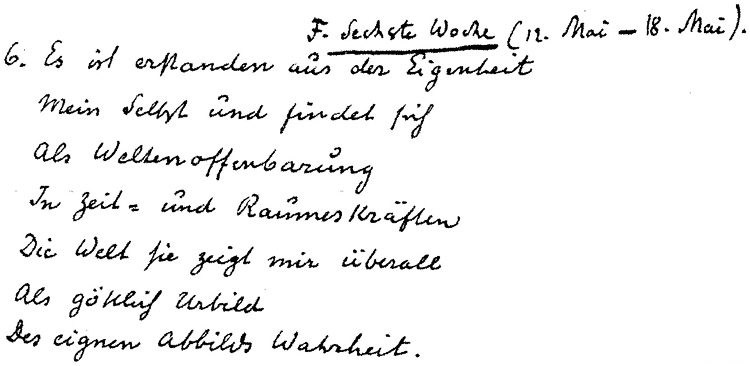 F. Sechste Woche (12. Mai – 18. Mai).
6. Es ist erstanden aus der Eigenheit
Mein Selbst und findet sich
Als Weltenoffenbarung
In Zeit= und Raumeskräften
Die Welt sie zeigt mir überall
Als göttlich Urbild
Des eignen Abbilds Wahrheit.